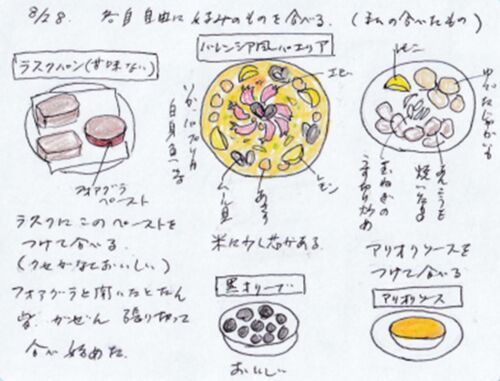 8/28. 各自自由に好みのものを食べる. (私の食べたもの)
ラスクパン(甘味ない)
フォアグラペースト
ラスクにこのペーストを
つけて食べる.
(クセがなくおいしい)
フォアグラと聞いたとたん
皆. がぜん 張り切って
食べ始めた.
バレンシア風パエリア
エビ
レモン
あさり
ムール貝
白身魚
米に少し芯がある.
黒オリーブ
おいしい
レモン
ゆでたじゃがいも
あんこうを焼いたもの
玉ねぎのうす切り炒め
アリオリソースを
つけて食べる
アリオリソース